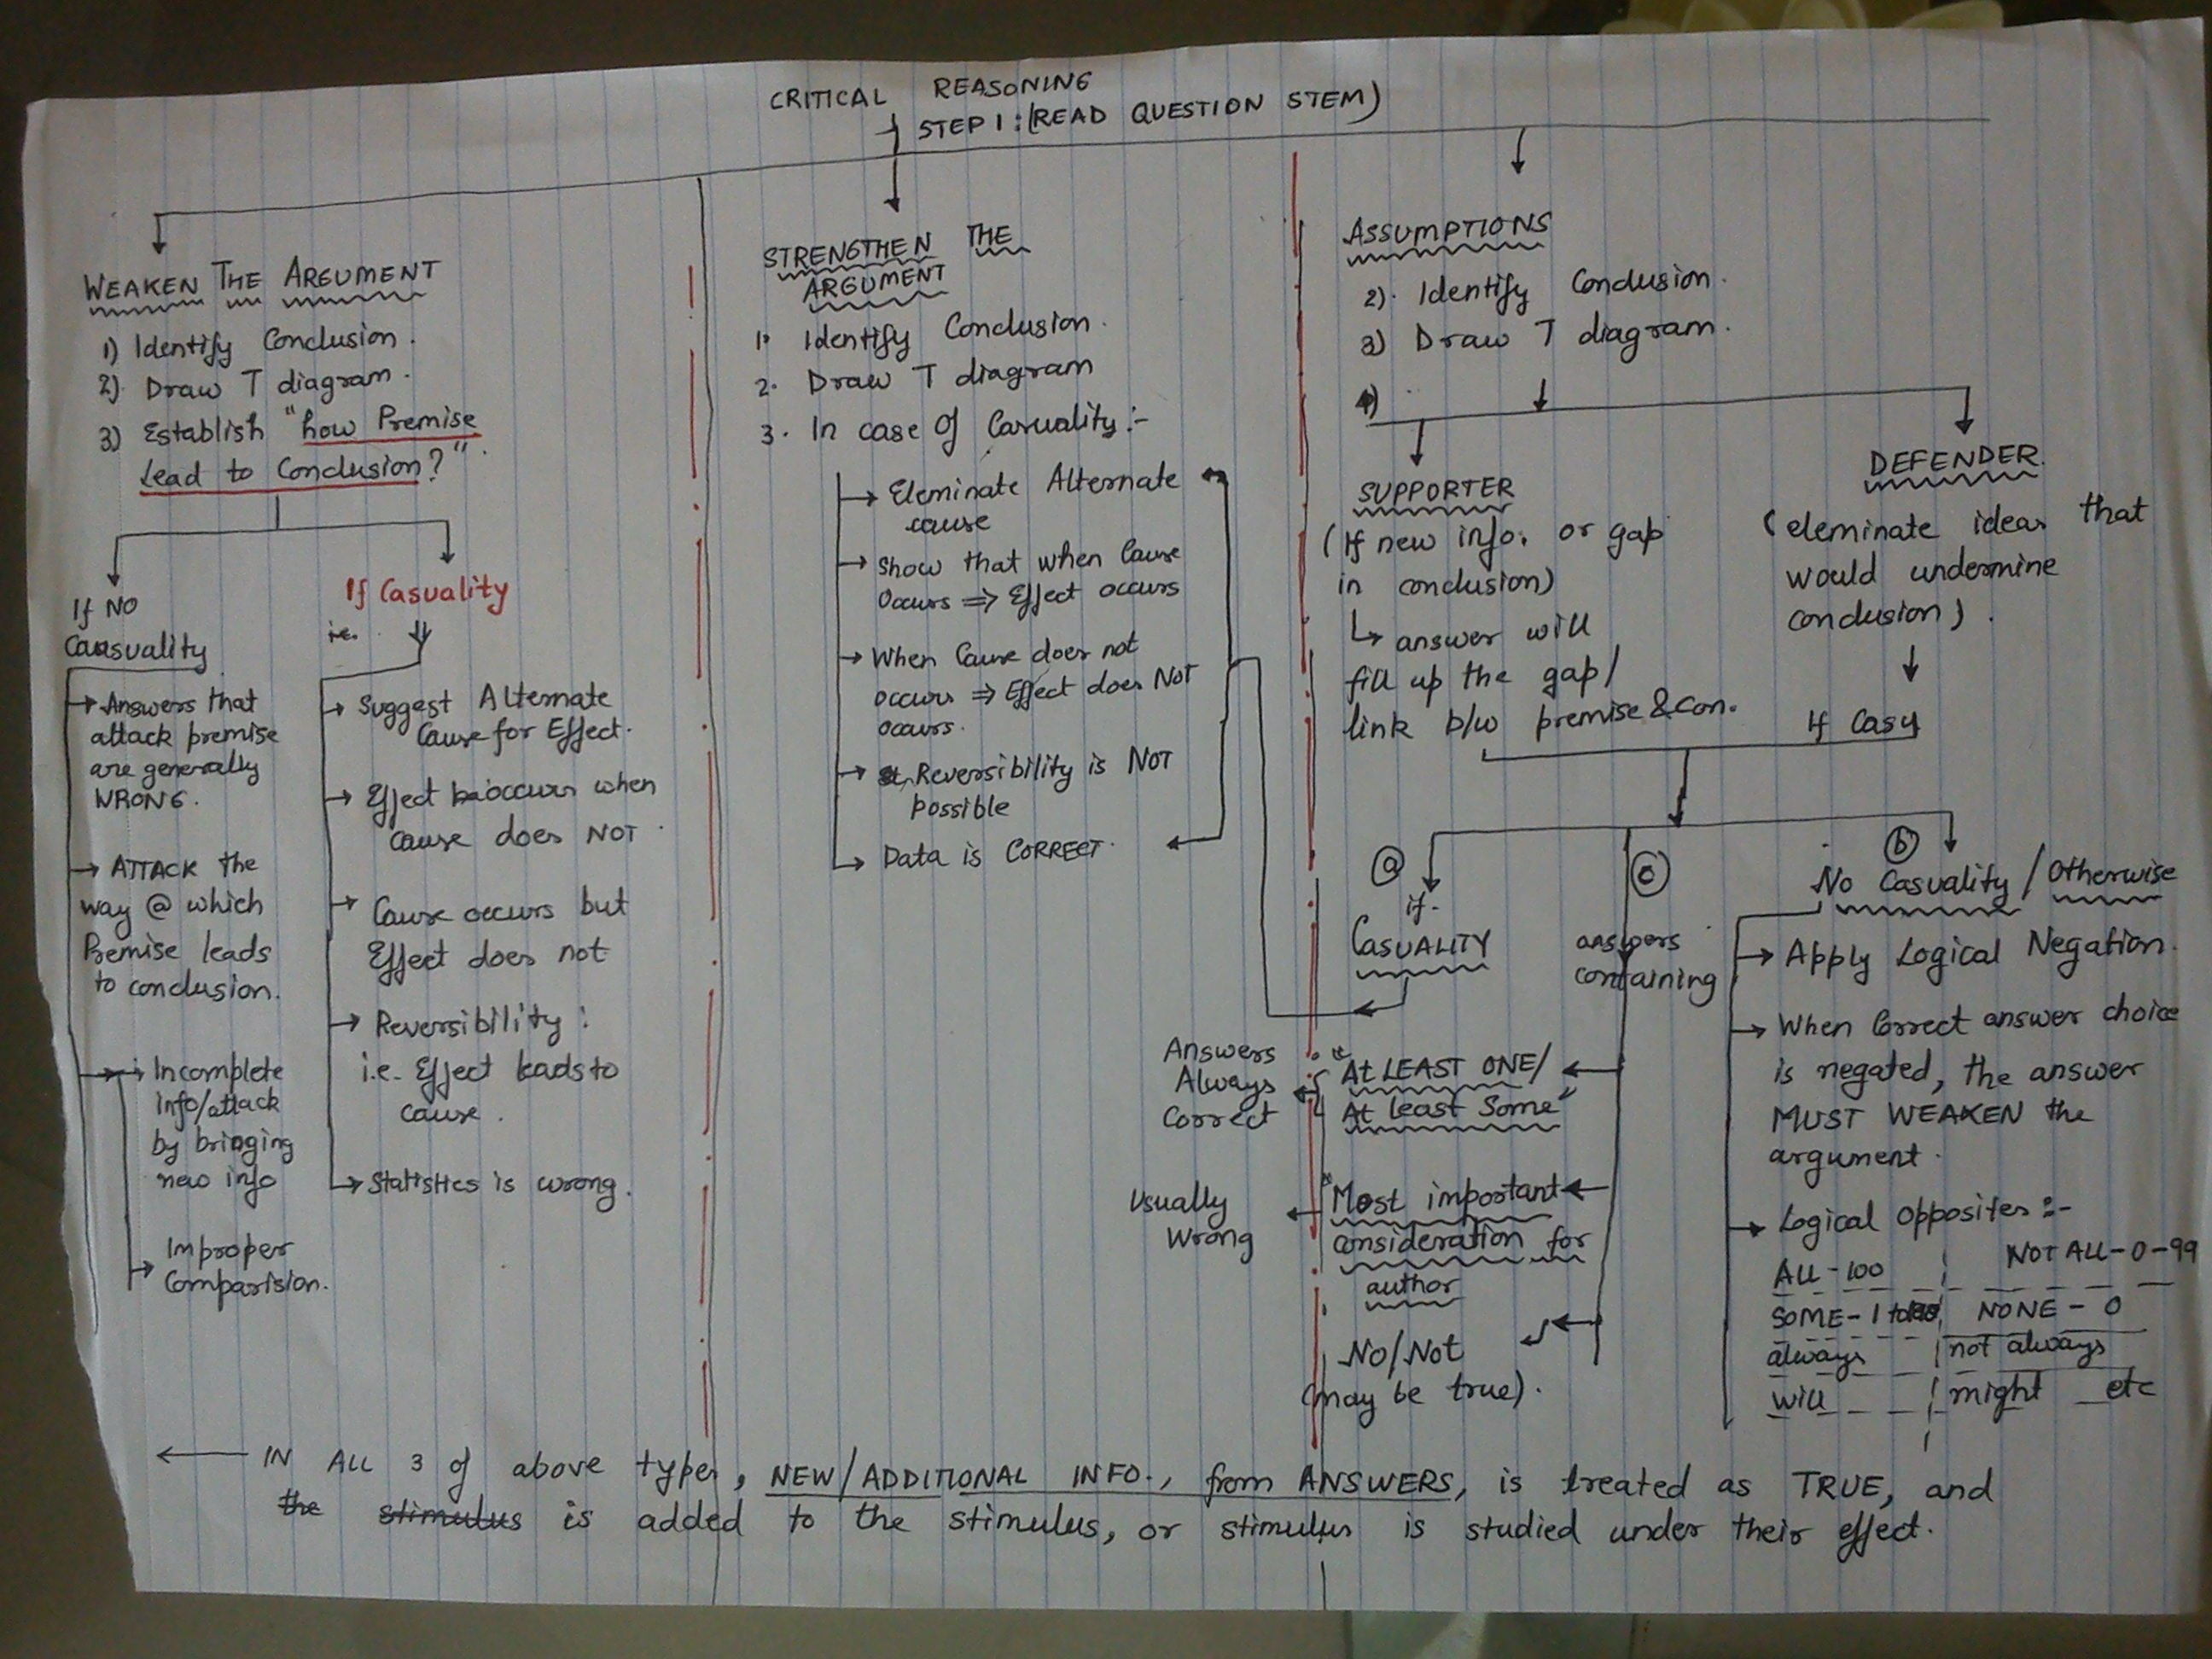 CRITICAL REASONING
STEP 1 : (READ QUESTION STEM)
WEAKEN THE ARGUMENT
1) Identify Conclusion.
2). Draw T diagram.
3) Establish "how Premise
lead to Conclusion?".
If NO
Causuality
→ Answers that
attack premise
are generally
WRONG.
→ ATTACK the
way @ which
Premise leads
to conclusion.
→ Incomplete
info/attack
by bringing
new info
→ Improper
Comparision.
If Casuality
i.e.
→ Suggest Alternate
Cause for Effect.
→ Effect occurs when
cause does NOT.
→ Cause occurs but
Effect does not
→ Reversibility :
i.e. Effect leads to
cause.
→ Statistics is wrong.
STRENGTHEN THE
ARGUMENT
1. Identify Conclusion.
2. Draw T diagram
3. In case of Casuality :-
→ Eleminate Alternate
cause
→ Show that when Cause
Occurs ⇒ Effect occurs
→ When Cause does not
occurs ⇒ Effect does NOT
occurs.
→ Reversibility is NOT
possible
→ Data is CORRECT.
ASSUMPTIONS
2). Identify Conclusion.
3) Draw T diagram.
4)
SUPPORTER
(If new info. or gap
in conclusion)
↳ answer will
fill up the gap/
link b/w premise & con.
DEFENDER
(eleminate ideas that
would undermine
conclusion).
If Casu
a
if
CASUALITY
c
answers
containing
Answers
Always
Correct
"At LEAST ONE/
At least Some"
Usually
Wrong
"Most important
consideration for
author
No/Not
(may be true).
b
No Casuality / Otherwise
→ Apply Logical Negation.
→ When Correct answer choice
is negated, the answer
MUST WEAKEN the
argument.
→ Logical opposites :-
ALL - 100 NOT ALL - 0 - 99
SOME - 1 to NONE - 0
always not always
will might etc
← IN ALL 3 of above types, NEW/ADDITIONAL INFO., from ANSWERS, is treated as TRUE, and
the stimulus is added to the stimulus, or stimulus is studied under their effect.